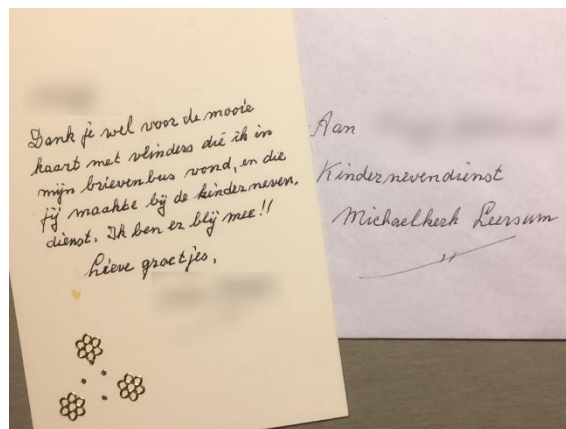 Dank je wel voor de mooie
kaart met vlinders die ik in
mijn brievenbus vond, en die
jij maakte bij de kinderneven.
dienst. Ik ben er blij mee!!
Lieve groetjes,
Aan
Kindernevendienst
Michaelkerk Leersum